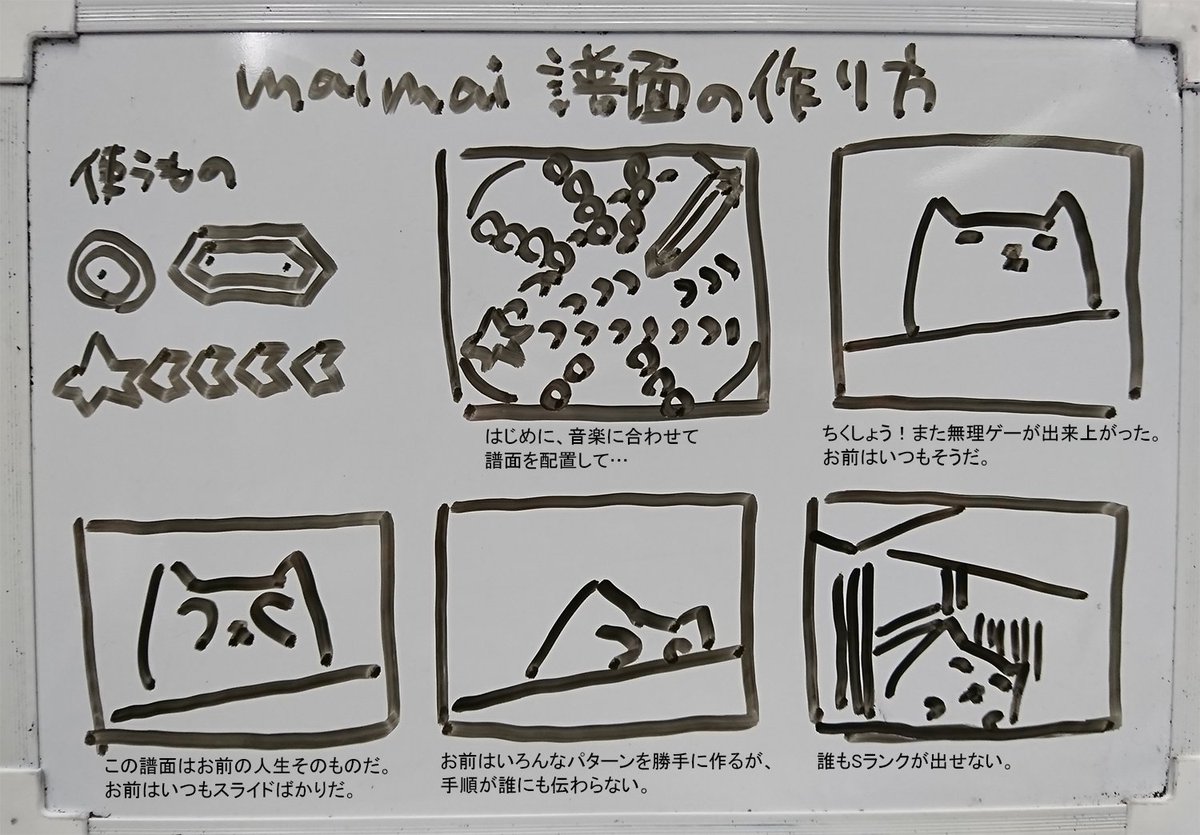 maimai 譜面の作り方
使うもの
はじめに、音楽に合わせて
譜面を配置して…
ちくしょう！また無理ゲーが出来上がった。
お前はいつもそうだ。
この譜面はお前の人生そのものだ。
お前はいつもスライドばかりだ。
お前はいろんなパターンを勝手に作るが、
手順が誰にも伝わらない。
誰もSランクが出せない。